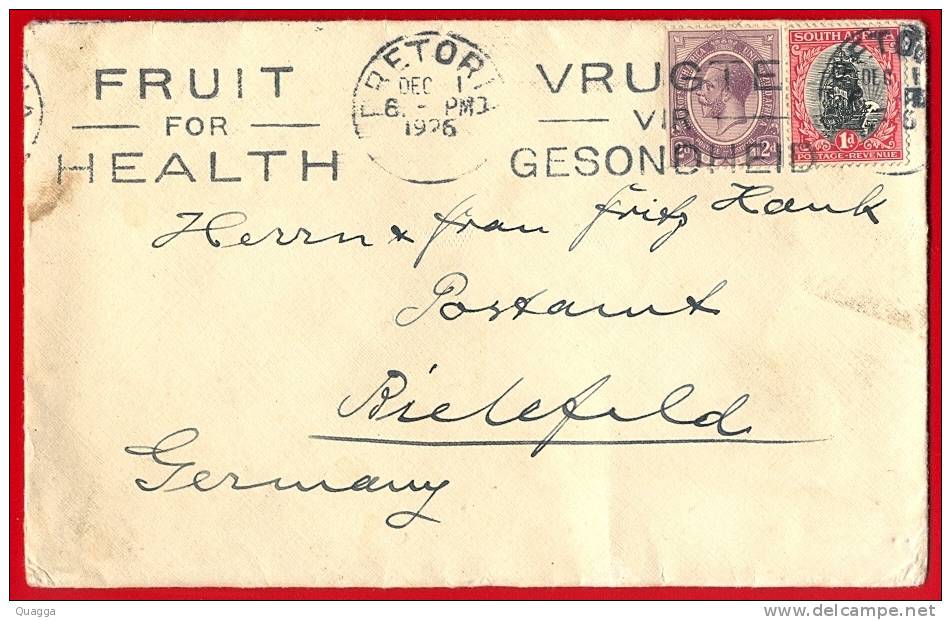 FRUIT
FOR
HEALTH
PRETORI
DEC 1
6. - PM
1926
VRUGTE
VIR
GESONDHEID
2d
SOUTH AFRI
1d
POSTAGE-REVENUE
Herrn & Frau Fritz Hank
Postamt
Bielefeld
Germany
Quagga
www.delcampe.net